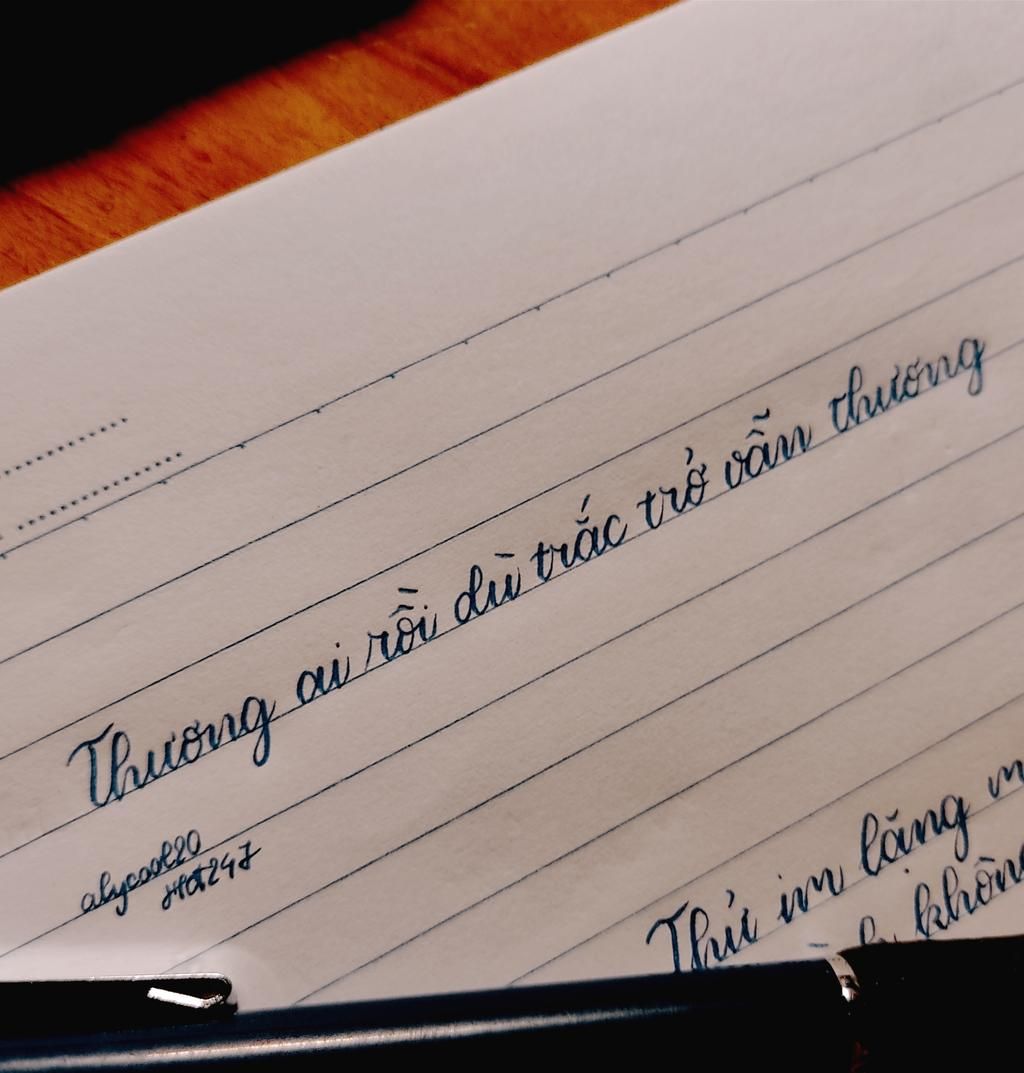 Thương ai rồi dù trắc trở vẫn thương
alycool20
Hot247
Thử im lặng